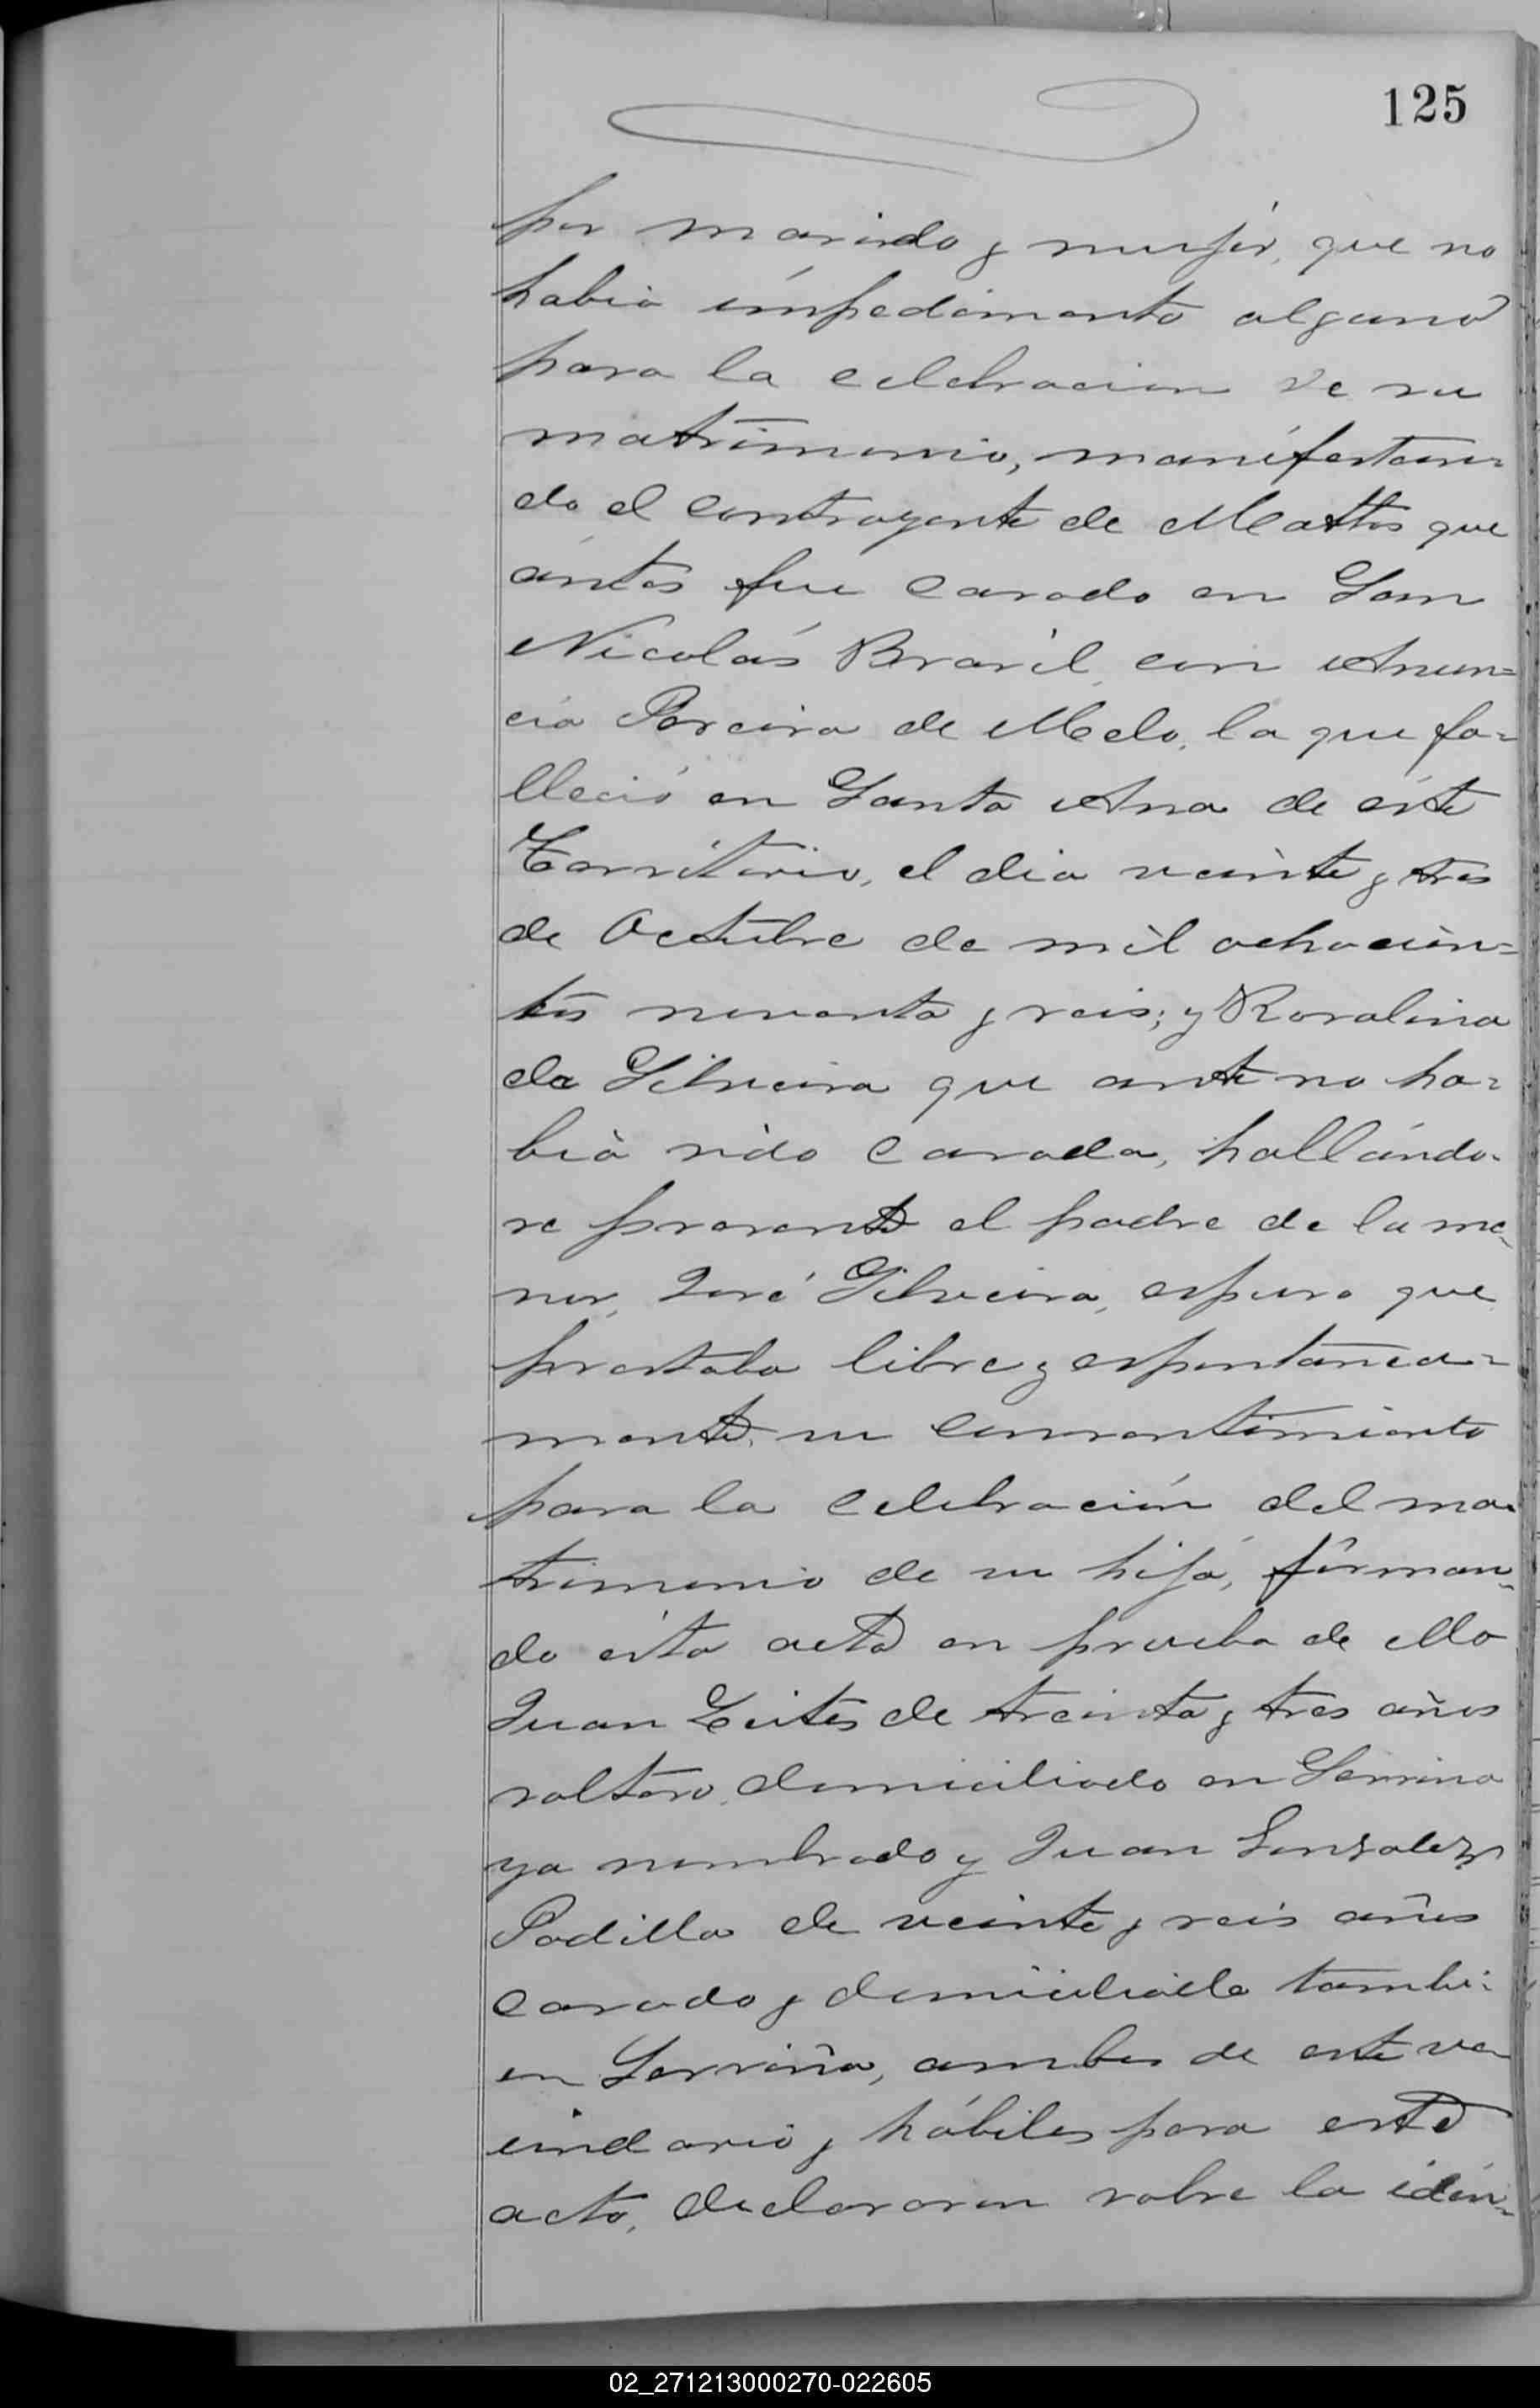 125
por marido y mujer, que no
habia impedimento alguno
para la celebracion de su
matrimonio, manifestan=
do el contrayente de Mattos que
ántes fue casado en San
Nicolás Brasil, con Anun=
cia Pereira de Melo, la que fa=
lleció en Santa Ana de éste
Territorio, el dia veinte y tres
de Octubre de mil ochocien=
tos noventa y seis; y Rosalina
da Silveira que ante no ha=
bia sido casada, hallándo-
se presente el padre de la me-
nor, José Silveira, espuso que
prestaba libre y espontánea=
mente, su consentimiento
para la celebración del ma-
trimonio de su hija, firman-
do ésta acta en prueba de ello
Juan Leites de treinta y tres años
soltero, domiciliado en
ya nombrado y Juan Gonzalez
Padilla de veinte y seis años
casado y domiciliado tambi-
en ambos de este ve-
cindario y hábiles para este
acto, declararon sobre la iden-
02_271213000270-022605